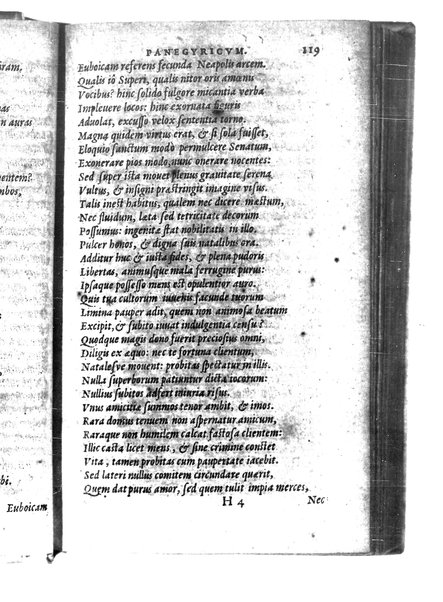 PANEGYRICVM. 119
Euboicam referens fecunda Neapolis arcem.
Qualis iô Superi, qualis nitor oris amœni
Vocibus? hinc solido fulgore micantia verba
Impleuere locos: hinc exornata figuris
Aduolat, excusso velox sententia torno.
Magna quidem virtus erat, & si sola fuisset,
Eloquio sanctum modò permulcere Senatum,
Exonerare pios modo, nunc onerare nocentes:
Sed super ista mouet plenus grauitate serena
Vultus, & insigni præstringit imagine visus.
Talis inest habitus, qualem nec dicere mæstum,
Nec fluidum, læta sed tetricitate decorum
Possumus: ingenitæ stat nobilitatis in illo.
Pulcer honos, & digna suis natalibus ora.
Additur huc & iusta fides, & plena pudoris
Libertas, animusque mala ferrugine purus:
Ipsaque possesso mens est opulentior auro.
Quis tua cultorum iuuenis facunde tuorum
Limina pauper adit, quem non animosa beatum
Excipit, & subito iuuat indulgentia censu?
Quodque magis dono fuerit preciosius omni,
Diligis ex æquo: nec te fortuna clientum,
Natalesve mouent: probitas spectatur in illis.
Nulla superborum patiuntur dicta iocorum:
Nullius subitos adfert iniuria risus.
Vnus amicitiæ summos tenor ambit, & imos.
Rara domus tenuem non aspernatur amicum,
Raraque non humilem calcat fastosa clientem:
Illic casta licet mens, & sine crimine constet
Vita, tamen probitas cum paupertate iacebit.
Sed lateri nullus comitem circundare quærit,
Quem dat purus amor, sed quem tulit impia merces,
H 4 Nec
Euboicam